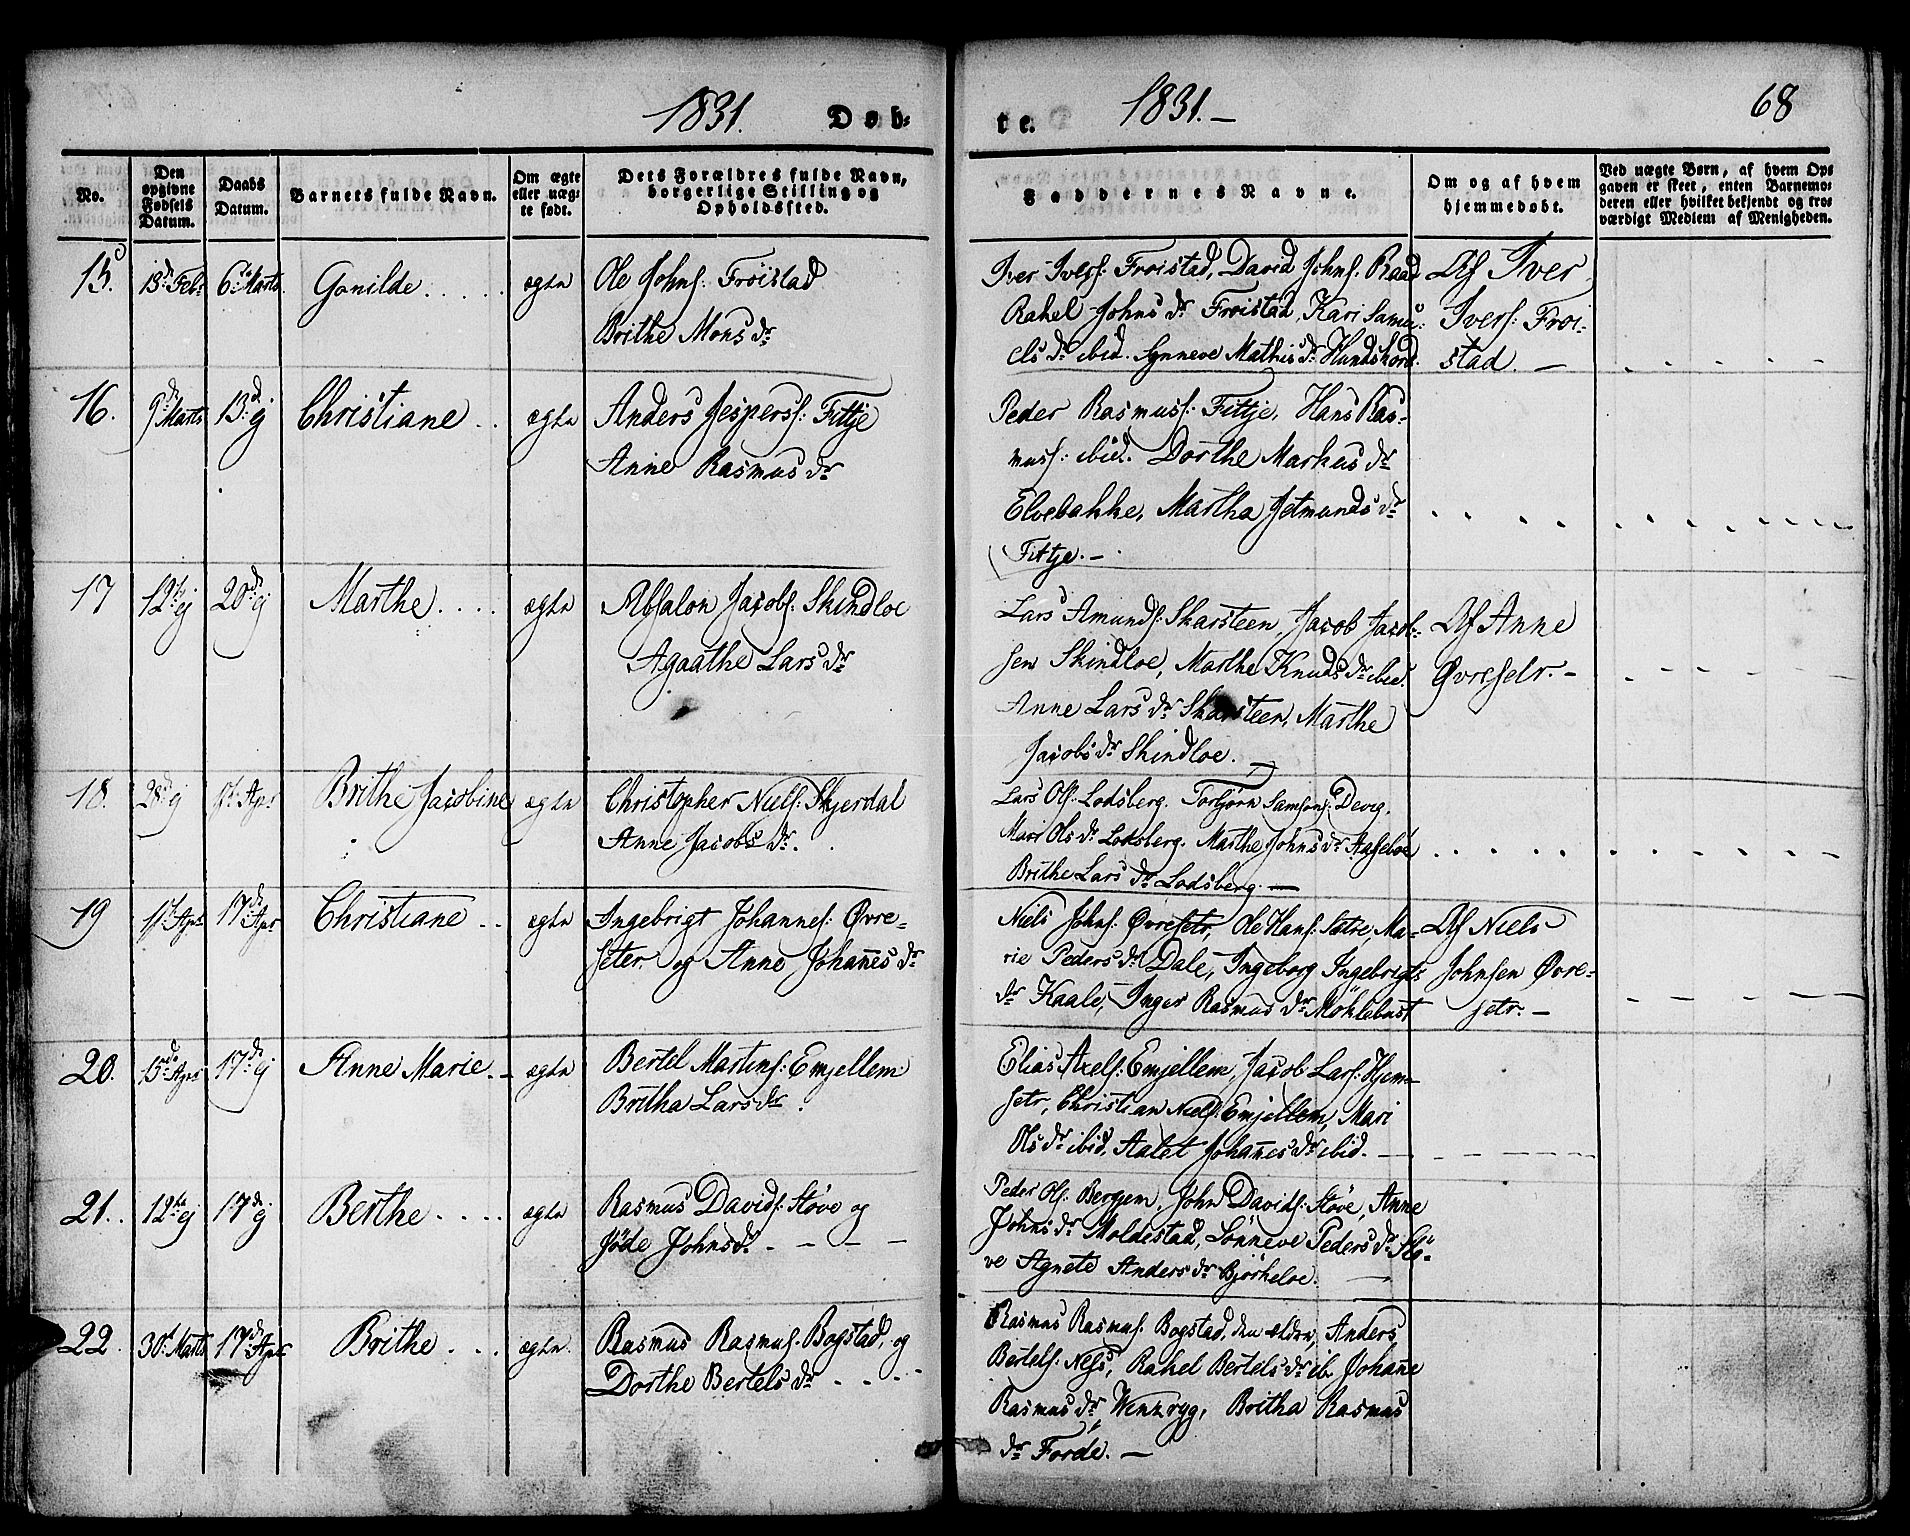 1831. Døb-
te. 1831.- 68
No. Den opgivne Fødsels Datum. Daabs Datum. Barnets fulde Navn. Om ægte eller uægte født. Dets Forældres fulde Navn, borgerlige Stilling og Opholdssted.
Faddernes Navne. Om og af hvem hjemmedøbt. Ved uægte Børn, af hvem Opgaven er skeet, enten Barnemoderen eller hvilket bekjendt og troværdigt Medlem af Menigheden.
15. 13de Febr 6te Marts Gonilde ægte Ole Johns: Frøistad
Brithe Monsdr
Iver Ivers: Frøistad, David Johns: Raad Af Iver
Rahel Johnsdr Frøistad, Kari Samu: Ivers: Frøi-
elsdr ibid. Synneve Mathisdr Hundskord. stad. -
16. 9de Marts 13de ej Christiane ægte Anders Jespers: Fittje
Anne Rasmusdr
Peder Rasmuss: Fittje, Hans Ras-
muss: ibid. Dorthe Markusdr
Elvebakke, Martha Jetmundsdr
Fittje. -
17 12te ej 20de ej Marthe ægte Absalon Jacobs: Skindloe
Agaathe Larsdr
Lars Amunds: Skarsteen, Jacob Jacob- Af Anne
sen Skindloe, Marthe Knudsdr ibid. Øvreseter. -
Anne Larsdr Skarsteen, Marthe
Jacobsdr Skindloe.
18. 28de ej 1ste Apr Brithe Jacobine ægte Christopher Niels: Skjerdal
Anne Jacobsdr.
Lars Ols: Lodsberg. Torbjørn Samsons: Devig.
Mari Olsdr Lodsberg. Marthe Johnsdr Aaseboe
Brithe Larsdr Lodsberg. -
19 1ste Apr 17de Apr Christiane ægte Ingebrigt Johannes: Øvre-
seter og Anne Johannesdr
Niels Johns: Øvresetr, Ole Hans: Sætre, Ma- Af Niels
rie Pedersdr Dale, Ingeborg Ingebrigts Johnsen Øvre-
dr Kaale, Inger Rasmusdr Møklebust setr. -
20. 15de Apr 17de ej Anne Marie ægte Bertel Martins: Emjellem
Britha Larsdr.
Elias Axels: Emjellem, Jacob Lars: Hjem-
setr, Christian Niels: Emjellem, Mari
Olsdr ibid, Aalet Johannesdr ibid.
21. 12te ej 17de ej Berthe ægte Rasmus Davids: Støve og
Jøde Johnsdr
Peder Ols: Bergem, John Davids: Støve, Anne
Johnsdr Moldestad, Sønneve Pedersdr Stø-
ve Agnete Andersdr Bjørkeloe.
22. 30te Marts 17de Apr Brithe ægte. Rasmus Rasmus: Bogstad, og
Dorthe Bertelsdr
Rasmus Rasmus: Bogstad, den ældre, Anders
Bertels: Nes, Rahel Bertelsdr ib Johanne
Rasmusdr, Wenzryg, Britha Rasmus
dr Førde. -